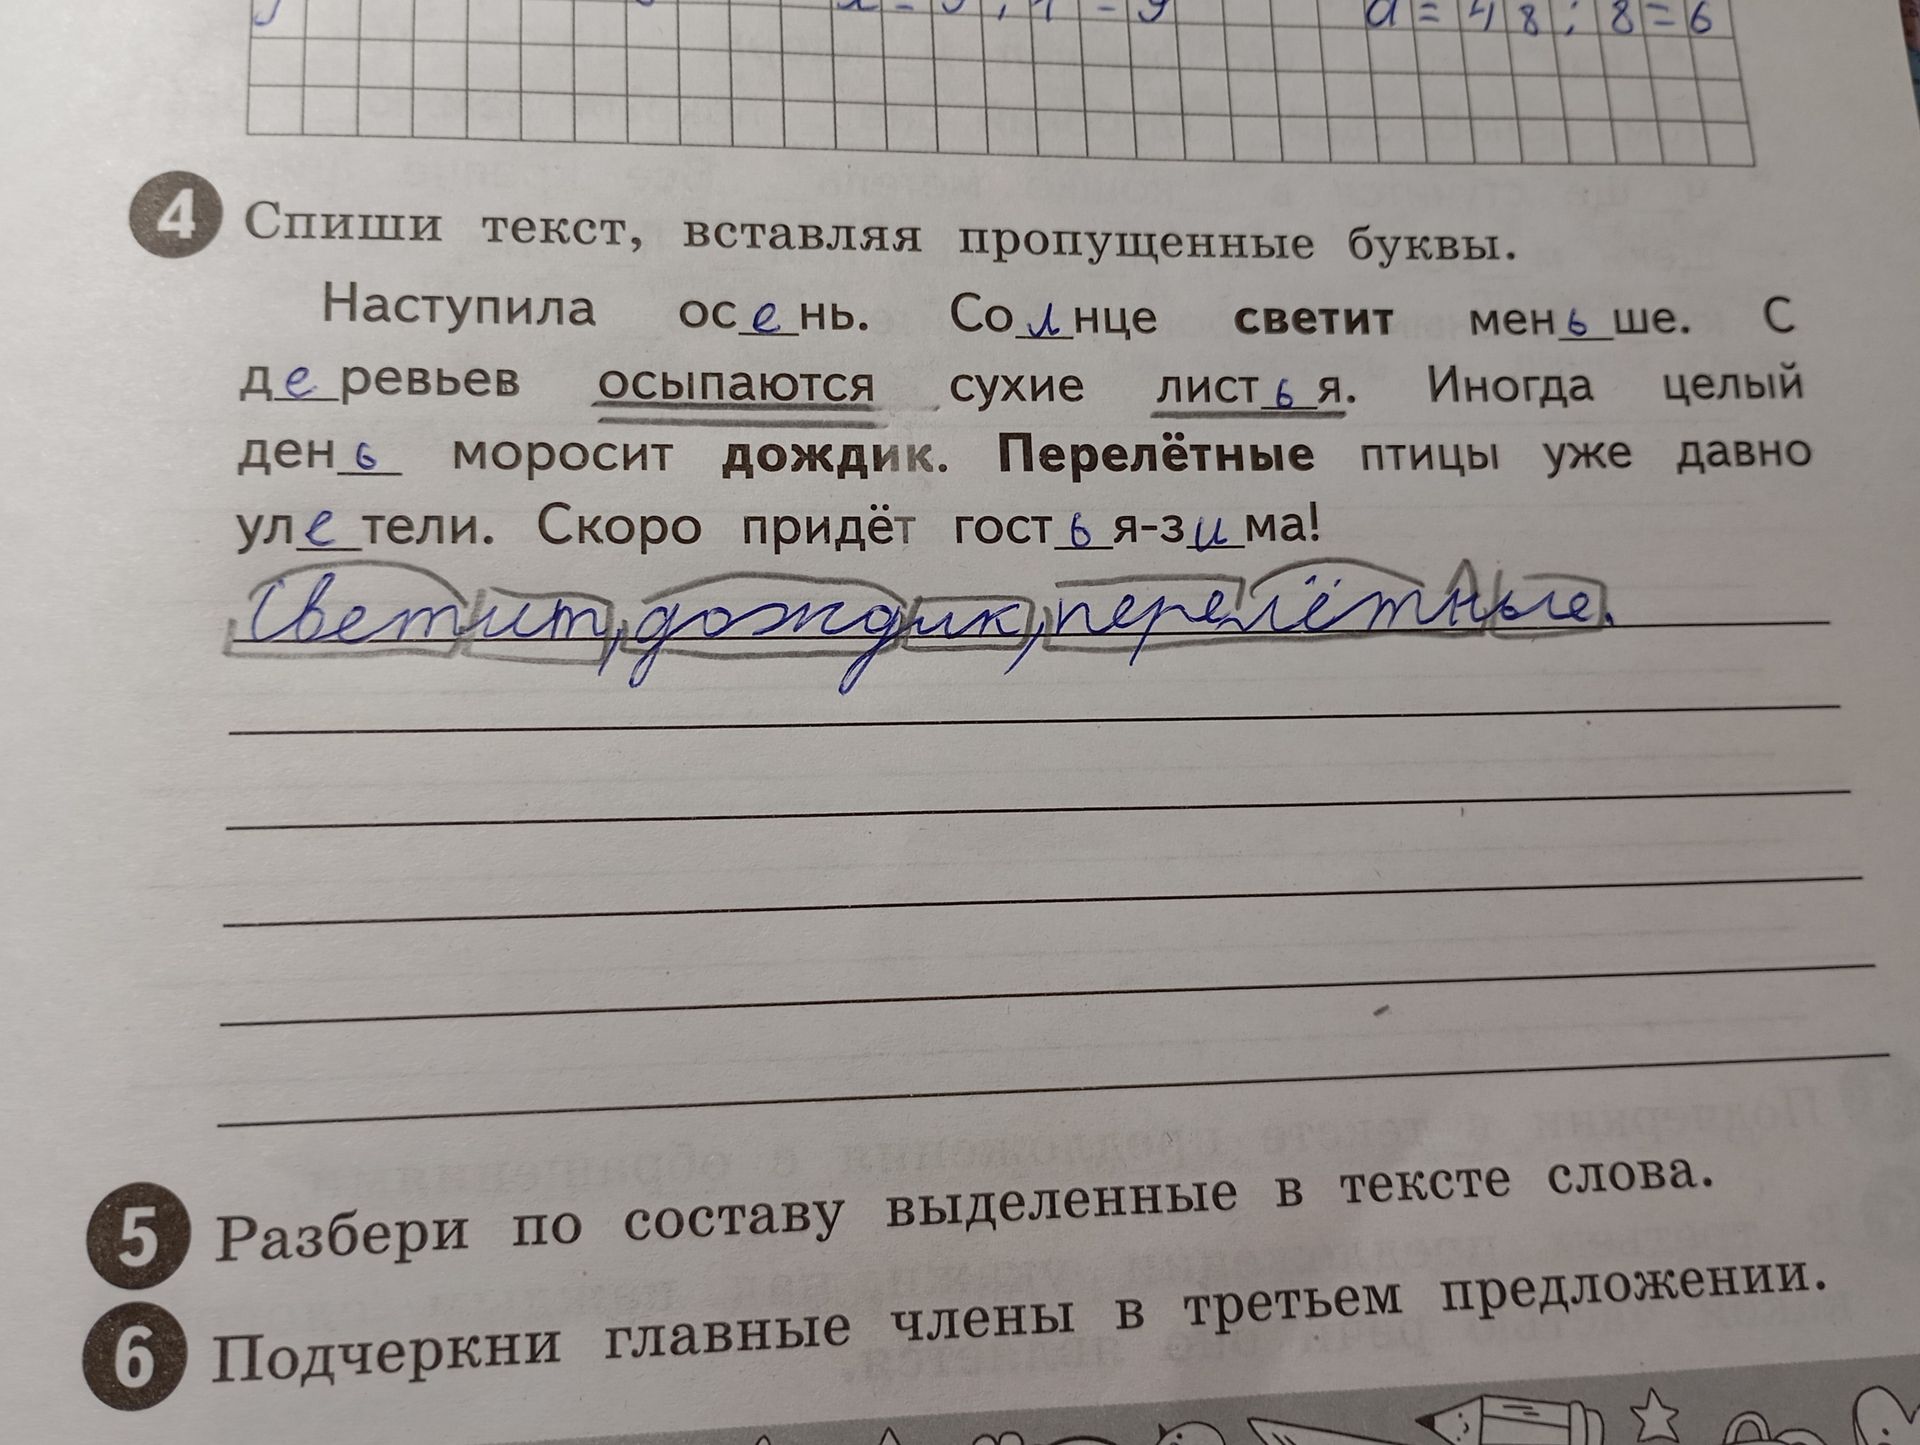 a = 48 : 8 = 6
4 Спиши текст, вставляя пропущенные буквы.
Наступила осень. Солнце светит меньше. С
деревьев осыпаются сухие листья. Иногда целый
день моросит дождик. Перелётные птицы уже давно
улетели. Скоро придёт гостья-зима!
Светит, дождик, перелётные.
5 Разбери по составу выделенные в тексте слова.
6 Подчеркни главные члены в третьем предложении.